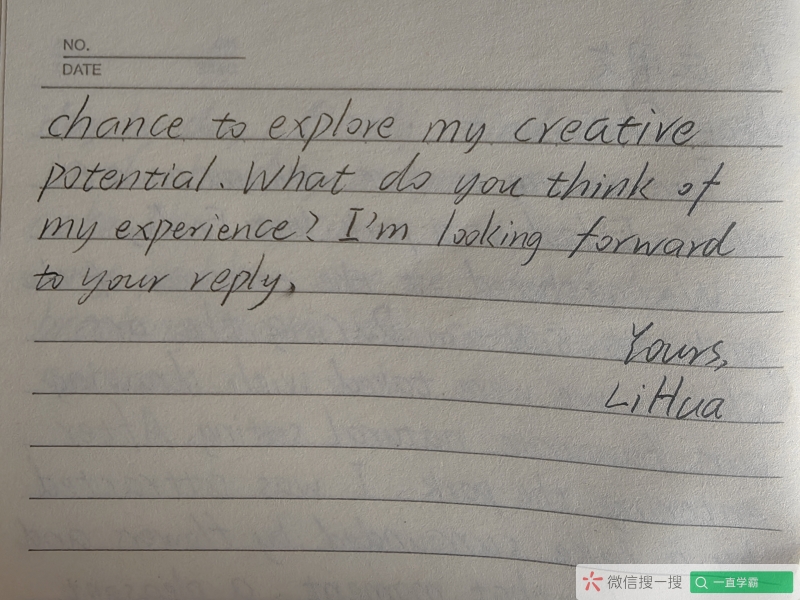 NO.
DATE
chance to explore my creative
potential. What do you think of
my experience? I'm looking forward
to your reply.
Yours,
LiHua
微信搜一搜 一直学霸